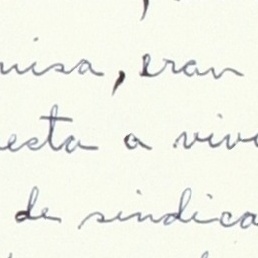 uisa, eran
esta a viv
de sindica